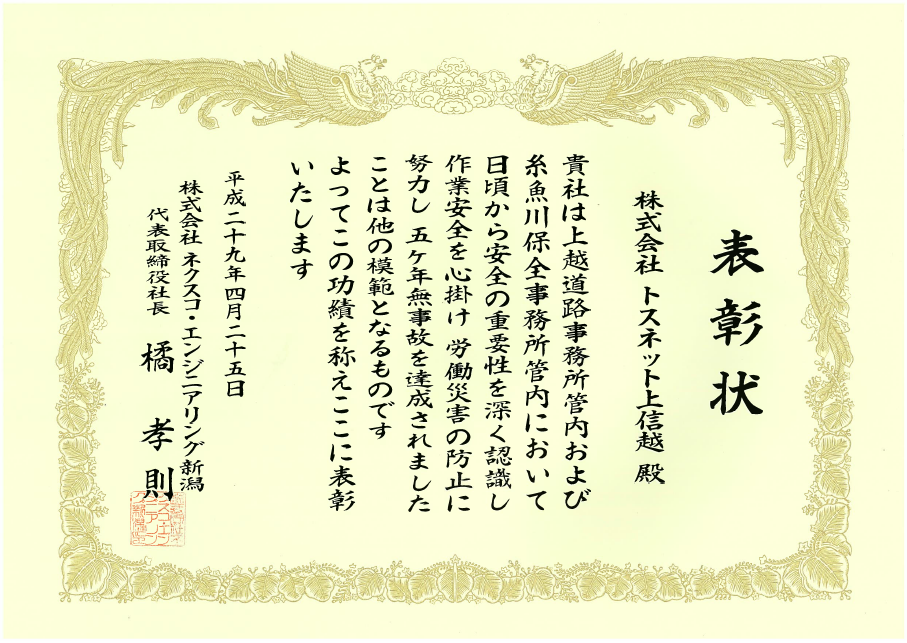 表彰状
株式会社 トスネット上信越 殿
貴社は上越道路事務所管内および
糸魚川保全事務所管内において
日頃から安全の重要性を深く認識し
作業安全を心掛け 労働災害の防止に
努力し 五ケ年無事故を達成されました
ことは他の模範となるものです
よってこの功績を称えここに表彰
いたします
平成二十九年四月二十五日
株式会社 ネクスコ・エンジニアリング新潟
代表取締役社長 橘 孝則